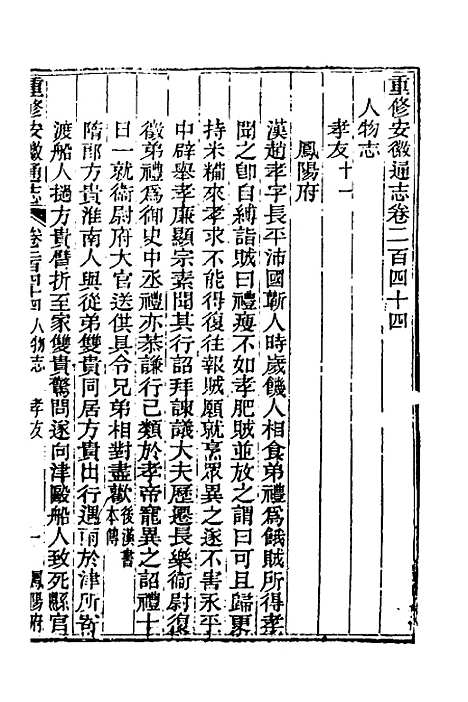 重修安徽通志卷二百四十四
人物志
孝友十一
鳳陽府
漢趙孝字長平沛國蘄人時歲饑人相食弟禮爲餓賊所得孝
聞之卽自縛詣賊曰禮瘦不如孝肥賊並放之謂曰可且歸更
持米糒來孝求不能得復往報賊願就烹眾異之遂不害永平
中辟舉孝廉顯宗素聞其行詔拜諫議大夫歷遷長樂衞尉復
徵弟禮爲御史中丞禮亦恭謙行己類於孝帝寵異之詔禮十
日一就衞尉府大官送供具令兄弟相對盡歡後漢書本傳
隋郎方貴淮南人與從弟雙貴同居方貴出行遇雨於津所寄
渡船人撾方貴臂折至家雙貴驚問遂向津毆船人致死縣官
重修安徽通志 卷二百四十四 人物志 孝友 一 鳳陽府